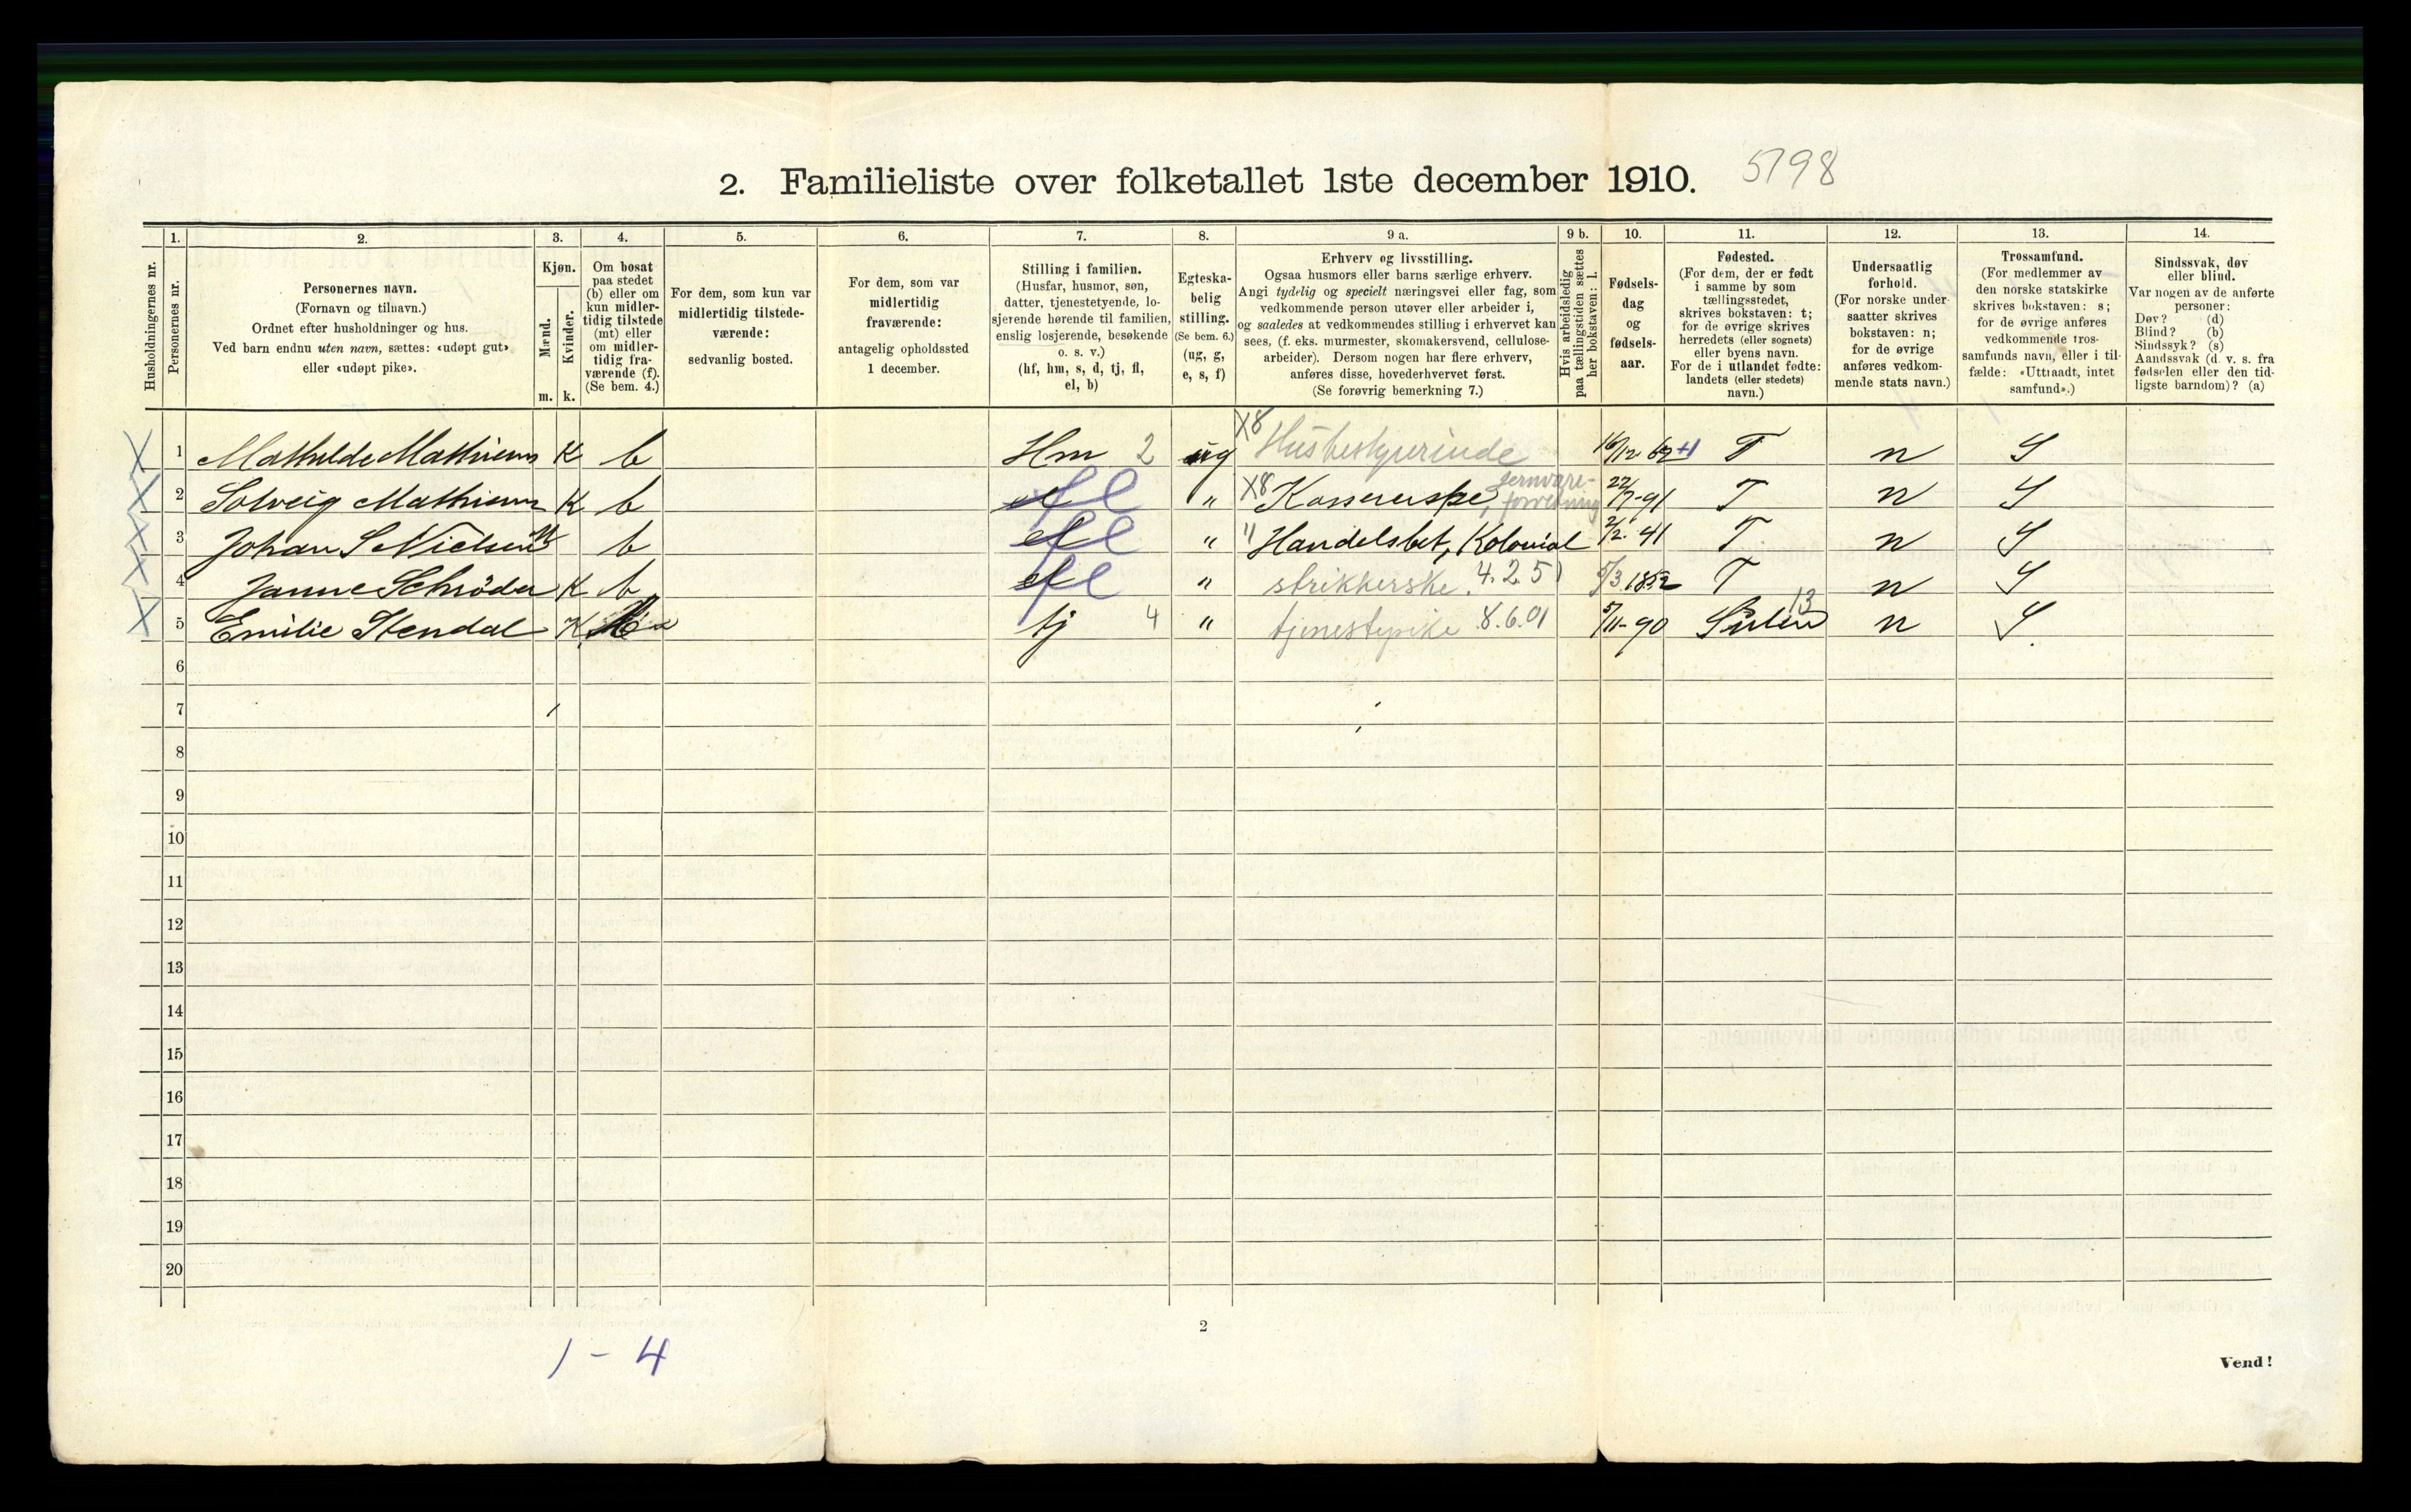 2. Familieliste over folketallet 1ste december 1910. 5798
Husholdningernes nr.
1. Personernes nr.
2. Personernes navn. (Fornavn og tilnavn.) Ordnet efter husholdninger og hus. Ved barn endnu uten navn, sættes: «udøpt gut» eller «udøpt pike».
3. Kjøn. Mænd. m. Kvinder. k.
4. Om bosat paa stedet (b) eller om kun midlertidig tilstede (mt) eller om midlertidig fraværende (f). (Se bem. 4.)
5. For dem, som kun var midlertidig tilstedeværende: sedvanlig bosted.
6. For dem, som var midlertidig fraværende: antagelig opholdssted 1 december.
7. Stilling i familien. (Husfar, husmor, søn, datter, tjenestetyende, losjerende hørende til familien, enslig losjerende, besøkende o. s. v.) (hf, hm, s, d, tj, fl, el, b)
8. Egteskabelig stilling. (Se bem. 6.) (ug, g, e, s, f)
9 a. Erhverv og livsstilling. Ogsaa husmors eller barns særlige erhverv. Angi tydelig og specielt næringsvei eller fag, som vedkommende person utøver eller arbeider i, og saaledes at vedkommendes stilling i erhvervet kan sees, (f. eks. murmester, skomakersvend, cellulosearbeider). Dersom nogen har flere erhverv, anføres disse, hovederhvervet først. (Se forøvrig bemerkning 7.)
9 b. Hvis arbeidsledig paa tællingstiden sættes her bokstaven: l.
10. Fødselsdag og fødselsaar.
11. Fødested. (For dem, der er født i samme by som tællingsstedet, skrives bokstaven: t; for de øvrige skrives herredets (eller sognets) eller byens navn. For de i utlandet fødte: landets (eller stedets) navn.)
12. Undersaatlig forhold. (For norske undersaatter skrives bokstaven: n; for de øvrige anføres vedkommende stats navn.)
13. Trossamfund. (For medlemmer av den norske statskirke skrives bokstaven: s; for de øvrige anføres vedkommende trossamfunds navn, eller i tilfælde: «Uttraadt, intet samfund».)
14. Sindssvak, døv eller blind. Var nogen av de anførte personer: Døv? (d) Blind? (b) Sindssyk? (s) Aandssvak (d. v. s. fra fødselen eller den tidligste barndom)? (a)
X 1 Mathilde Mathiesen K b Hm 2 ug X8 Husbestyrerinde 16/12 62 T n S
X 2 Solveig Mathiesen K b el fl " X8 Kassererske, jernvareforretning 22/7-91 T n S
X 3 Johan S Nielsen M b el fl " " Handelsbet, Kolonial 2/2 41 T n S
X 4 Janne Schröder K b el fl " strikkerske. 4.2.5 5/3 1852 T n S
X 5 Emilie Stendal K tj 4 " tjenestepike 8.6.01 5/11-90 Sulen 13 n S
6
7
8
9
10
11
12
13
14
15
16
17
18
19
20
2
1 - 4
Vend!